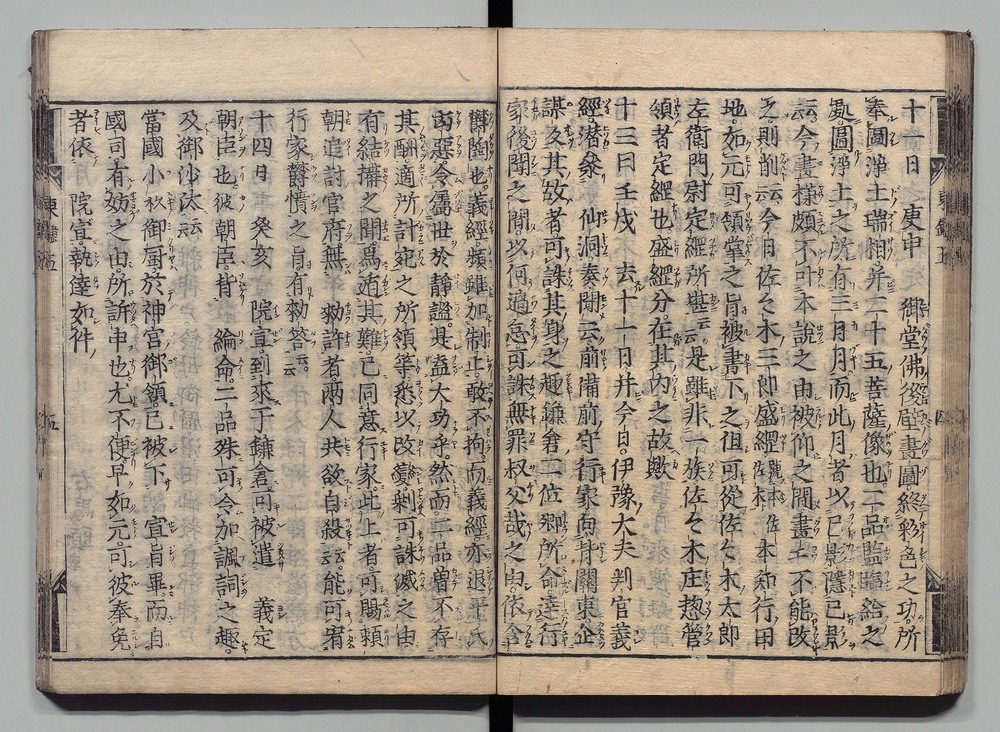 十一日 庚申 御堂佛後壁畫圖終彩色之功所
奉圖淨土瑞相并二十五菩薩像也二品監臨給之
處圖淨土之所有三日月而此月者以已影隱已晨
云今畫樣頗不叶本說之由被仰之間畫工不能改
之則削云云今日佐々木三郎盛經號佐々木本知行田
地如元可領掌之旨被書下之但可從佐々木太郎
左衛門尉定經所堪云云是雖非一族佐々木庄惣管
領者定經也盛經分在其內之故歟
十三日壬戌 去十一日并今日伊豫大夫判官義
經潛參 仙洞奏聞云前備前守行家向背關東企
謀反其故者可誅其身之趣鎌倉二位卿所命達行
家後聞之間以何過怠可誅無罪叔父哉之由依含
鬱陶也義經頻雖加制止敢不拘而義經亦退平氏
凶惡令屬世於靜謐是盍大功乎然而二品曾不存
其酬適所計宛之所領等悉以改變剩可誅滅之由
有結搆之聞爲遁其難已同意行家此上者可賜賴
朝追討官府無 勅許者兩人共欲自殺云云能可宥
行家欝憤之旨有勅答云云
十四日 癸亥 院宣到來于鎌倉可被遣 義定
朝臣也彼朝臣背 綸命二品殊可令加諷詞之趣
及御沙汰云云
當國小杦御厨於神宮御領已被下 宣旨畢而自
國司有妨之由所訴申也尤不便早如元可彼奉免
者依 院宣執達如件
東鑑五
四
東鑑五
五